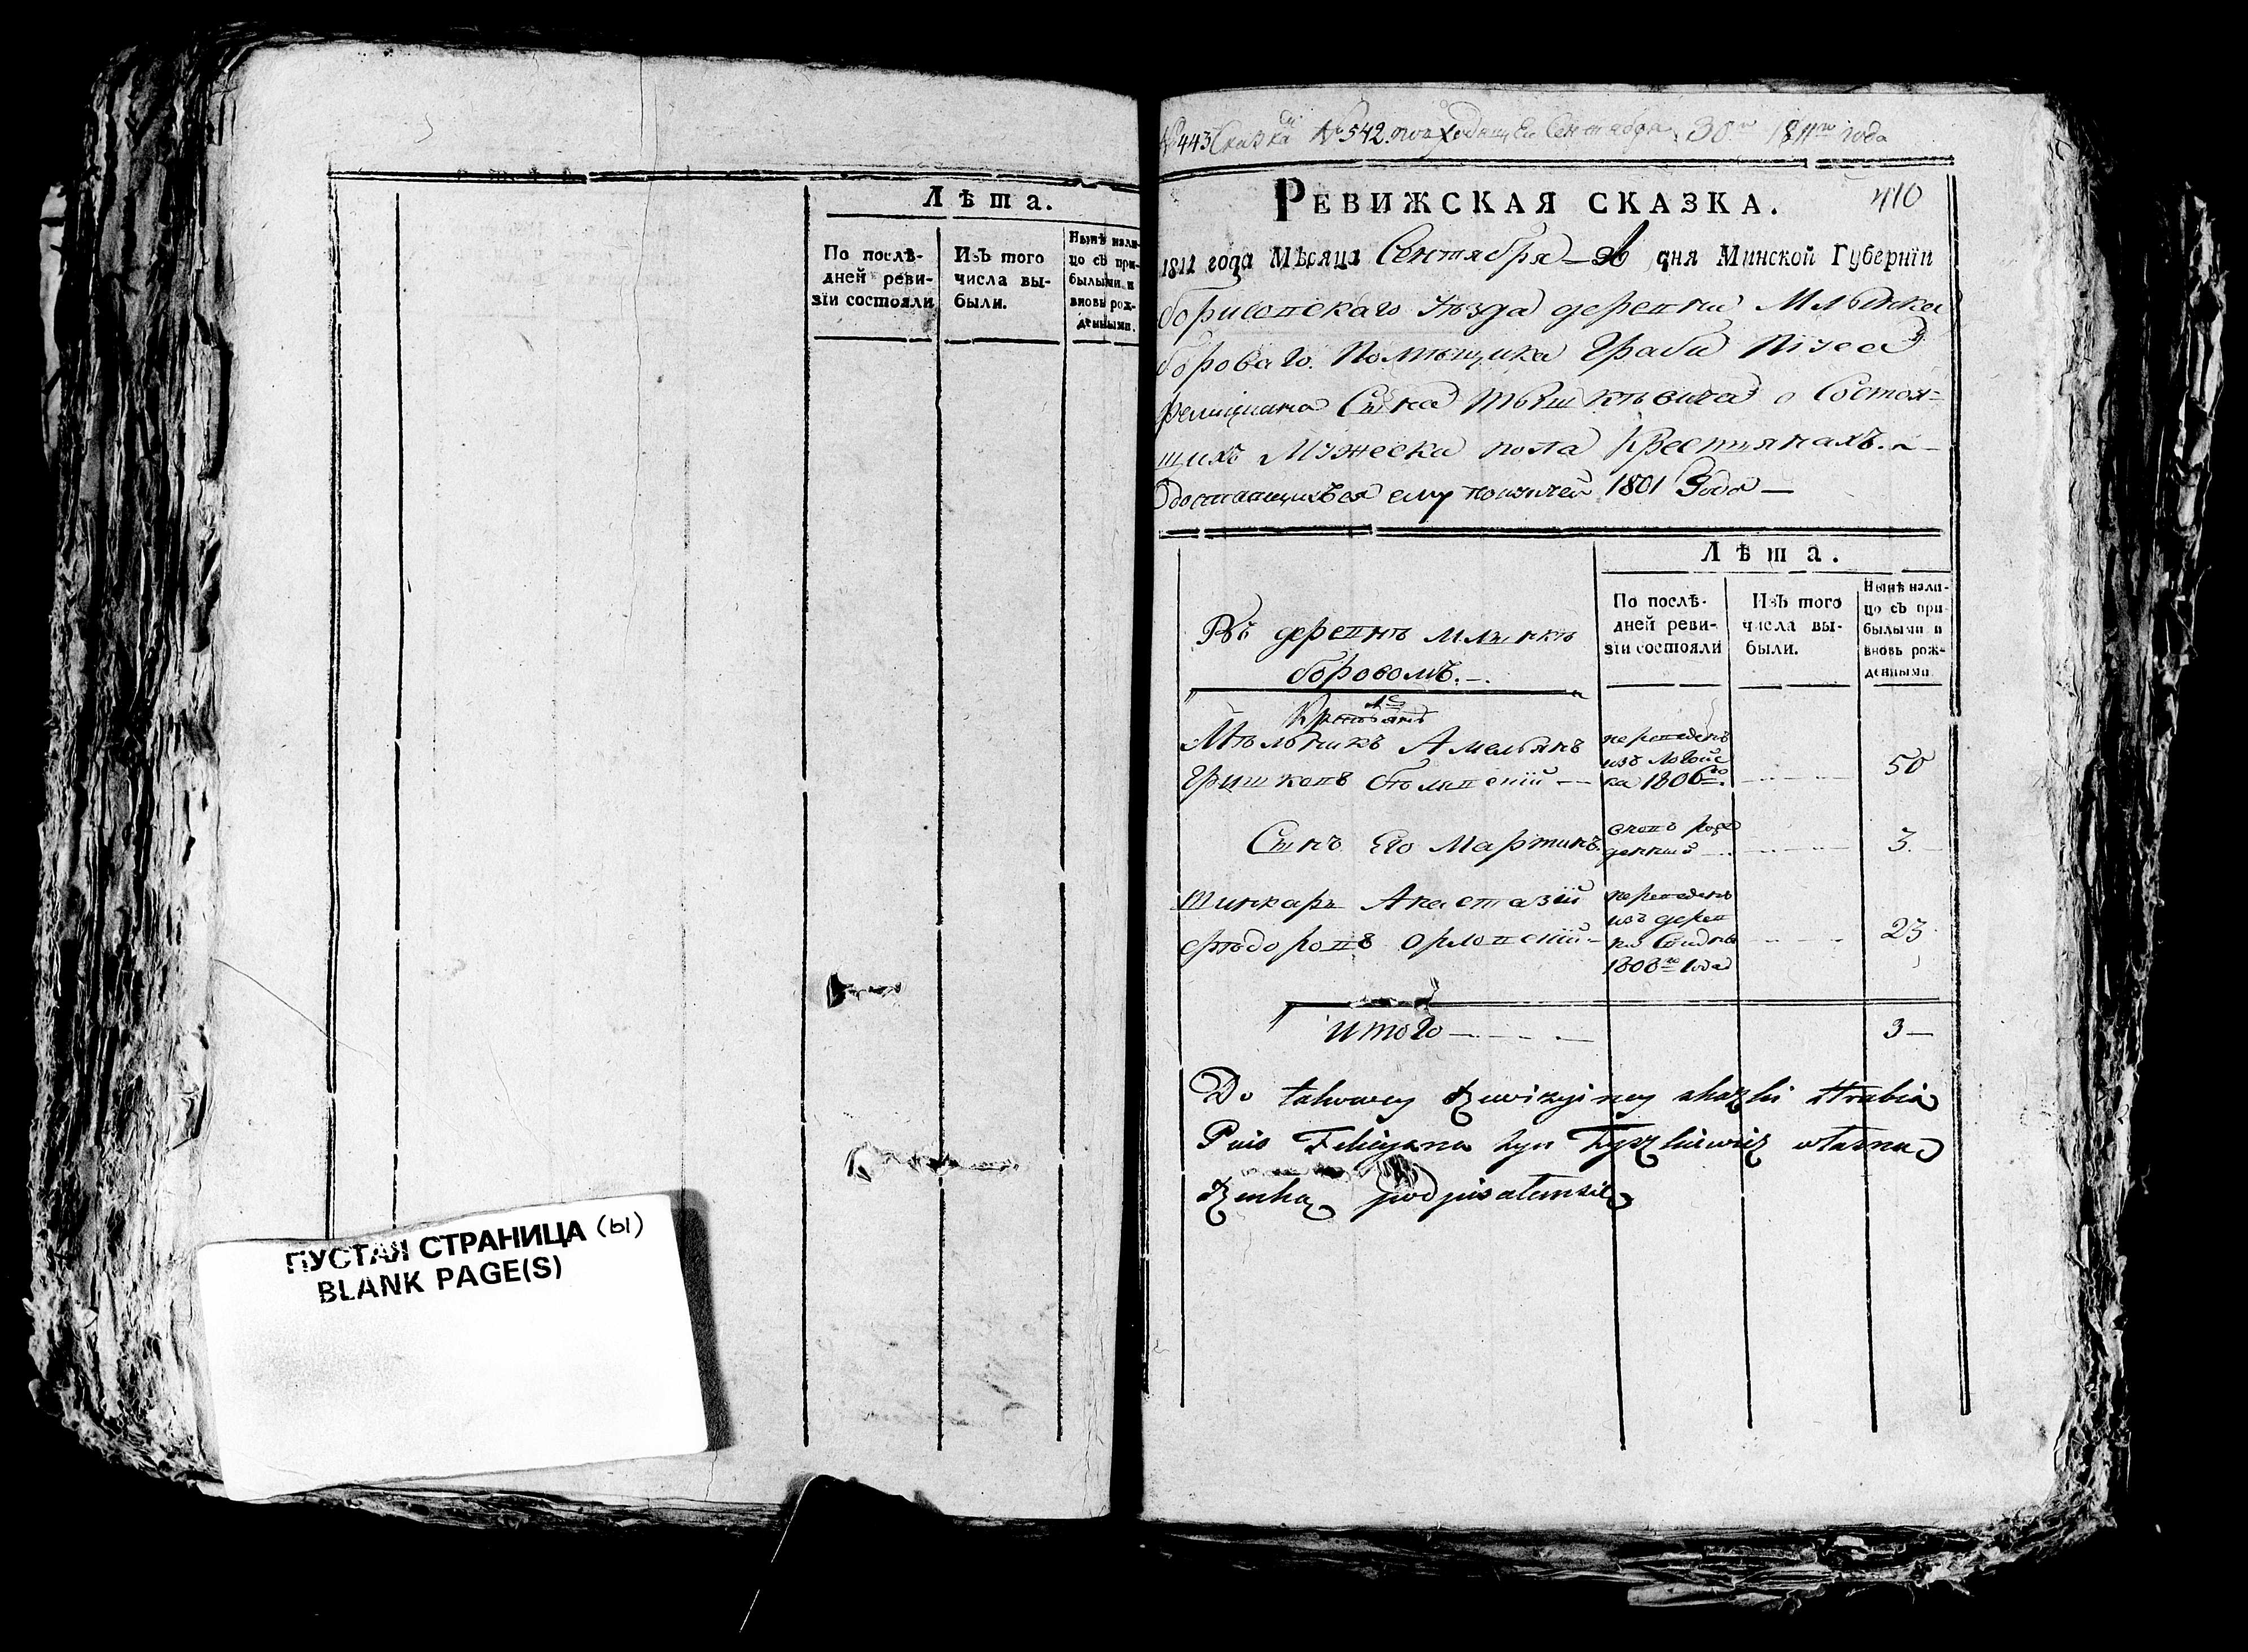 Лѣта.
По послѣ-
дней реви-
зіи состояли
Изъ того
числа вы-
были.
Нынѣ нали-
цо съ при-
былыми и
вновь рож-
денными.
ПУСТАЯ СТРАНИЦА (ы)
BLANK PAGE(S)
№ 443 Сказка № 542. Сентября 30го 1811го года
РЕВИЖСКАЯ СКАЗКА.
410
1811 года Мѣсяца Сентября — дня Минской Губерніи
борисовскаго уѣзда деревни Млынка
борового Помѣщика Графа Піуса
фелиціана Сына Тышкѣвича о Состоя-
щихъ Мужеска пола крестьянахъ. —
доставшихся ему 1801 Года —
Лѣта.
По послѣ-
дней реви-
зіи состояли
Изъ того
числа вы-
были.
Нынѣ нали-
цо съ при-
былыми и
вновь рож-
денными
Въ деревнѣ млынкѣ
боровомъ. —.
Мѣльникъ Амельянъ
Гришковъ —
переведенъ
изъ Логойс
ка 1806го.
50
Сынъ Его Мартинъ
вновь рож
денный —
3.
Шинкаръ Анастазій
фѣдоровъ орловскій —
переведенъ
изъ дерев
ни
1808го Года
23
Итого — — —
3 —
Do takowey Rewizyiney skazki Hrabia
Pius Felicyana syn Tyszkiewicz własną
Ręką podpisałem się